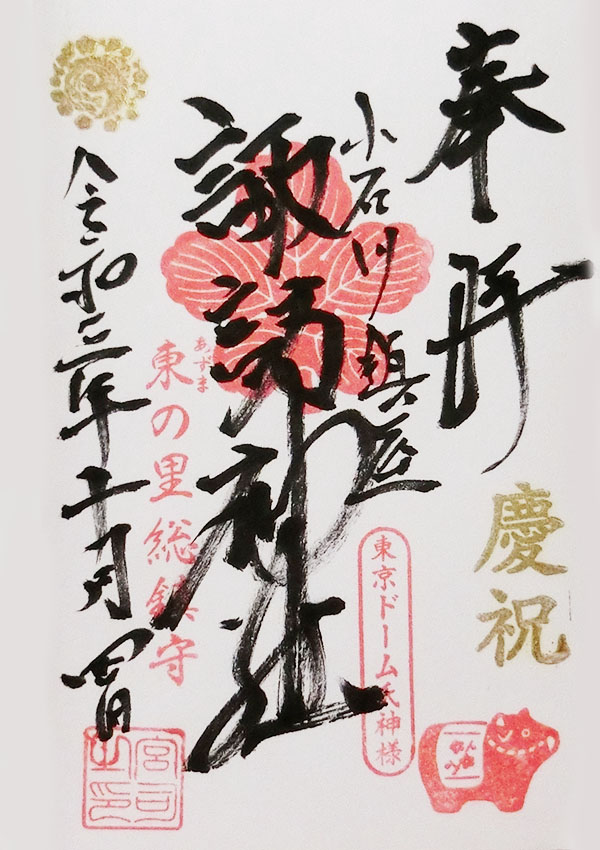 奉拝
慶祝
小石川鎮座
東京ドーム氏神様
諏訪神社
あずま
東の里総鎮守
令和三年十一月四日
宮司之印